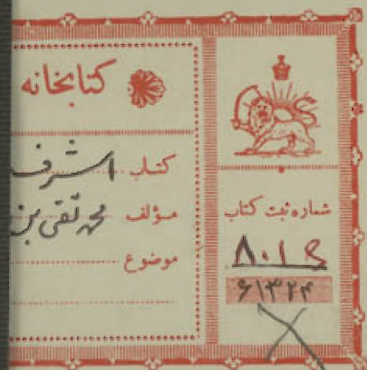 کتابخانه
کتاب اشرف
مؤلف محمد تقی بن
موضوع
شماره ثبت کتاب
۸۰۱
۶۱۳۲۴